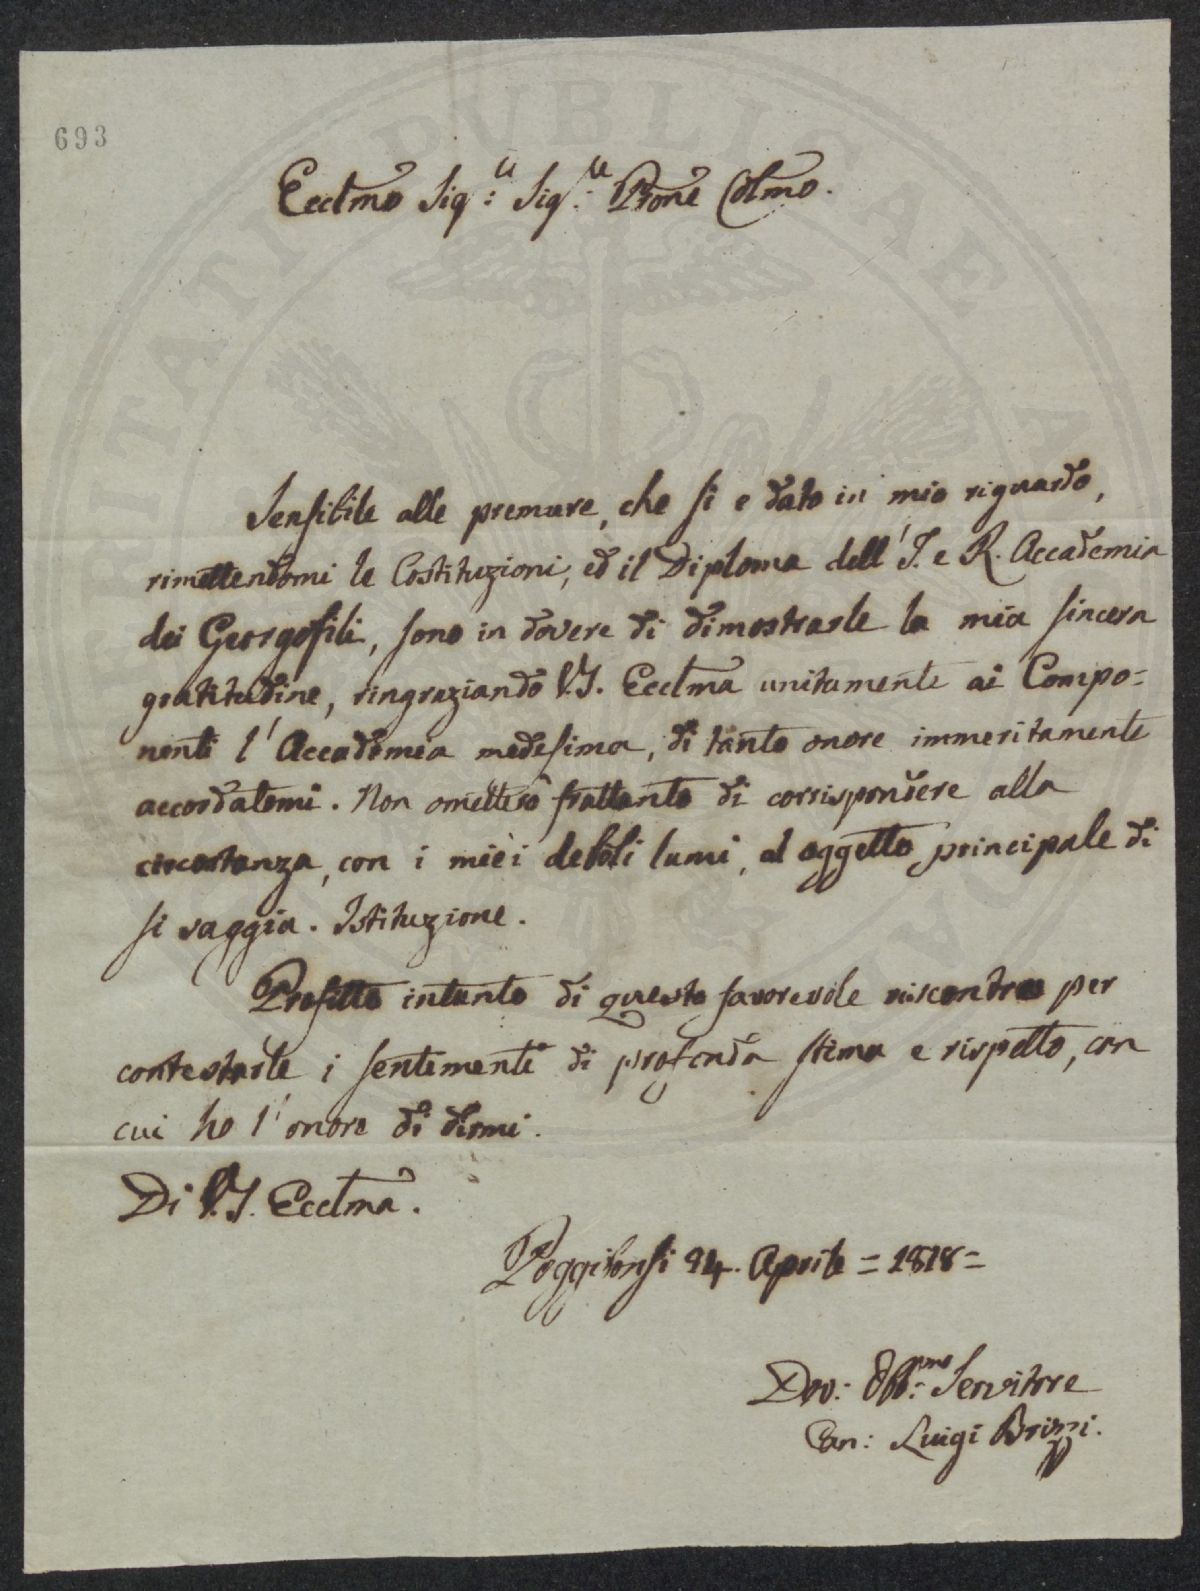 693
Ecclmo Sig:re Sig:re Prone Colmo.
Sensibile alle premure, che si è dato in mio riguardo,
rimettendomi le Costituzioni, ed il Diploma dell' I. e R. Accademia
dei Georgofili, sono in dovere di dimostrarle la mia sincera
gratitudine, ringraziando V.S. Ecclma unitamente ai Compo=
nenti l' Accademia medesima, di tanto onore immeritamente
accordatomi. Non ometterò frattanto di corrispondere alla
circostanza, con i miei deboli lumi, al oggetto principale di
si saggia. Istituzione.
Profitto intanto di questo favorevole riscontro per
contestarle i sentimenti di profonda stima e rispetto, con
cui ho l' onore di dirmi.
Di V.S. Ecclma.
Poggibonsi 24. Aprile = 1818 =
Dev: Obb:mo Servitore
Can: Luigi Brizzi.
PUBLICAE